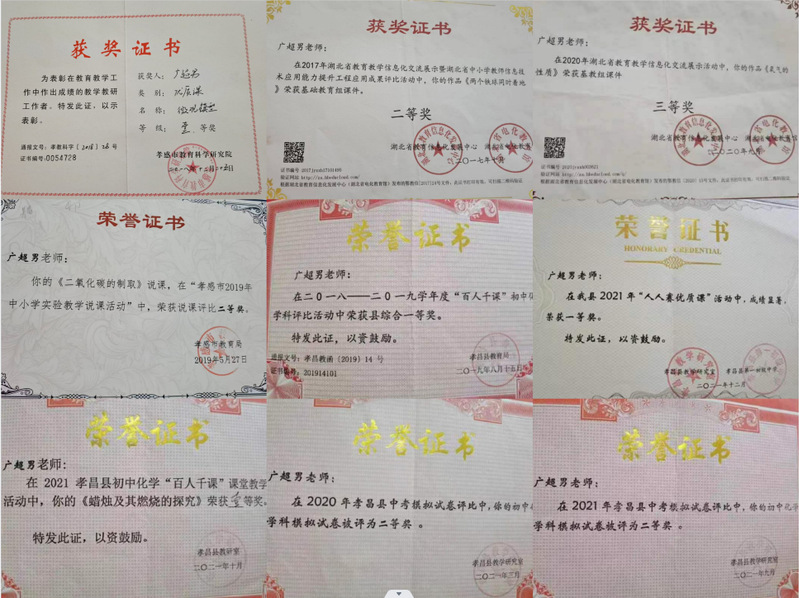 获奖证书
为表彰在教育教学工
作中作出成绩的教学教研
工作者。特发此证，以示
表彰。
获奖人：广超男
类 别：
名 称：
等 级：壹等奖
证书编号:0054728
孝感市教育科学研究院
获奖证书
广超男老师：
在2017年湖北省教育教学信息化交流展示暨湖北省中小学教师信息技
术应用能力提升工程应用成果评比活动中，你的作品《两个铁球同时着地》
荣获基础教育组课件。
二等奖
二〇一七年十月
获奖证书
广超男老师：
在2020年湖北省教育教学信息化交流展示活动中，你的作品《氧气的
性质》荣获基教组课件
三等奖
二〇二〇年九月
荣誉证书
广超男老师：
你的《二氧化碳的制取》说课，在“孝感市2019年
中小学实验教学说课活动”中，荣获说课评比二等奖。
孝感市教育局
2019年5月27日
荣誉证书
广超男老师：
在二〇一八——二〇一九学年度“百人千课”初中化
学科评比活动中荣获县综合一等奖。
特发此证，以资鼓励。
发证文号：孝昌教函（2019）14 号
证书编号：201914101
孝昌县教育局
二〇一九年八月十五日
荣誉证书
HONORARY CREDENTIAL
广超男老师：
在我县2021年“人人赛优质课”活动中，成绩显著，
荣获一等奖。
特发此证，以资鼓励。
孝昌县教学研究室 孝昌县第一初级中学
二〇二一年十二月
荣誉证书
广超男老师：
在 2021 孝昌县初中化学“百人千课”课堂教学
活动中，你的《蜡烛及其燃烧的探究》荣获壹等奖。
特发此证，以资鼓励。
孝昌县教研室
二〇二一年十月
荣誉证书
广超男老师：
在 2020 年孝昌县中考模拟试卷评比中，你的初中
学科模拟试卷被评为二等奖 。
孝昌县教学研究室
二〇二〇年三月
荣誉证书
广超男老师：
在 2021 年孝昌县中考模拟试卷评比中，你的初中
学科模拟试卷被评为二等奖 。
孝昌县教学研究室
二〇二一年九月